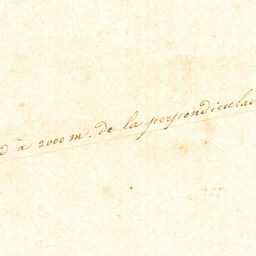 à 2000 m. de la perpendicula